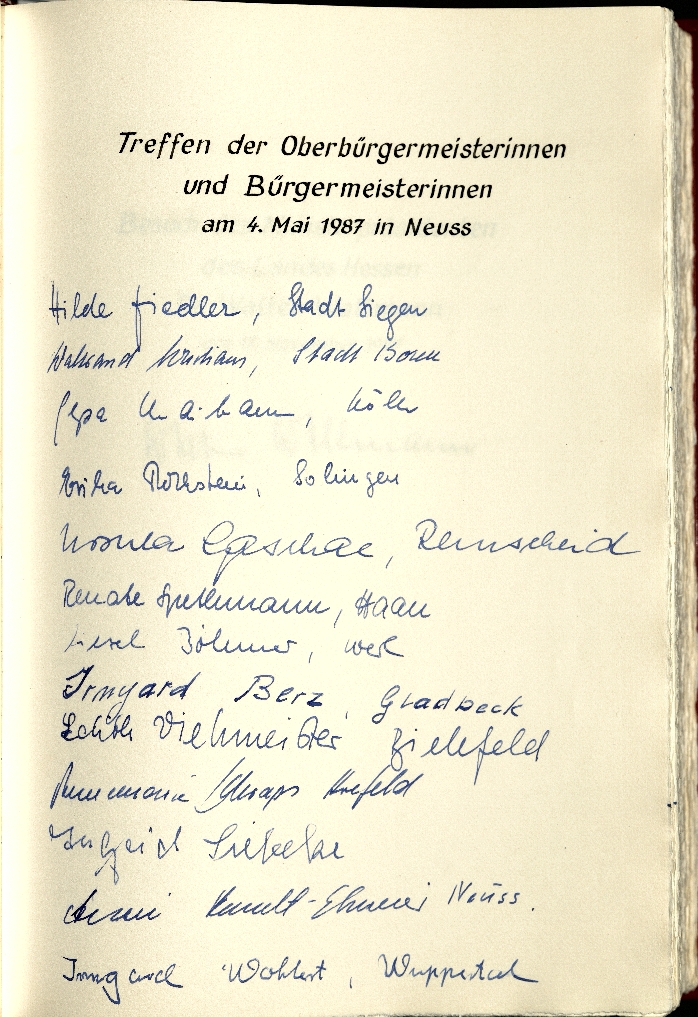 Treffen der Oberbürgermeisterinnen
und Bürgermeisterinnen
am 4. Mai 1987 in Neuss
Hilde Fiedler, Stadt Siegen
Stadt Bonn
Köln
Erika Rothstein, Solingen
Ursula Remscheid
Renate Spethmann, Haan
Böhmer, Werl
Irmgard Berz, Gladbeck
Edith Viehmeister Bielefeld
Annemarie Schraps Krefeld
Ingrid Siebeke
Neuss.
Irmgard Wohlert, Wuppertal